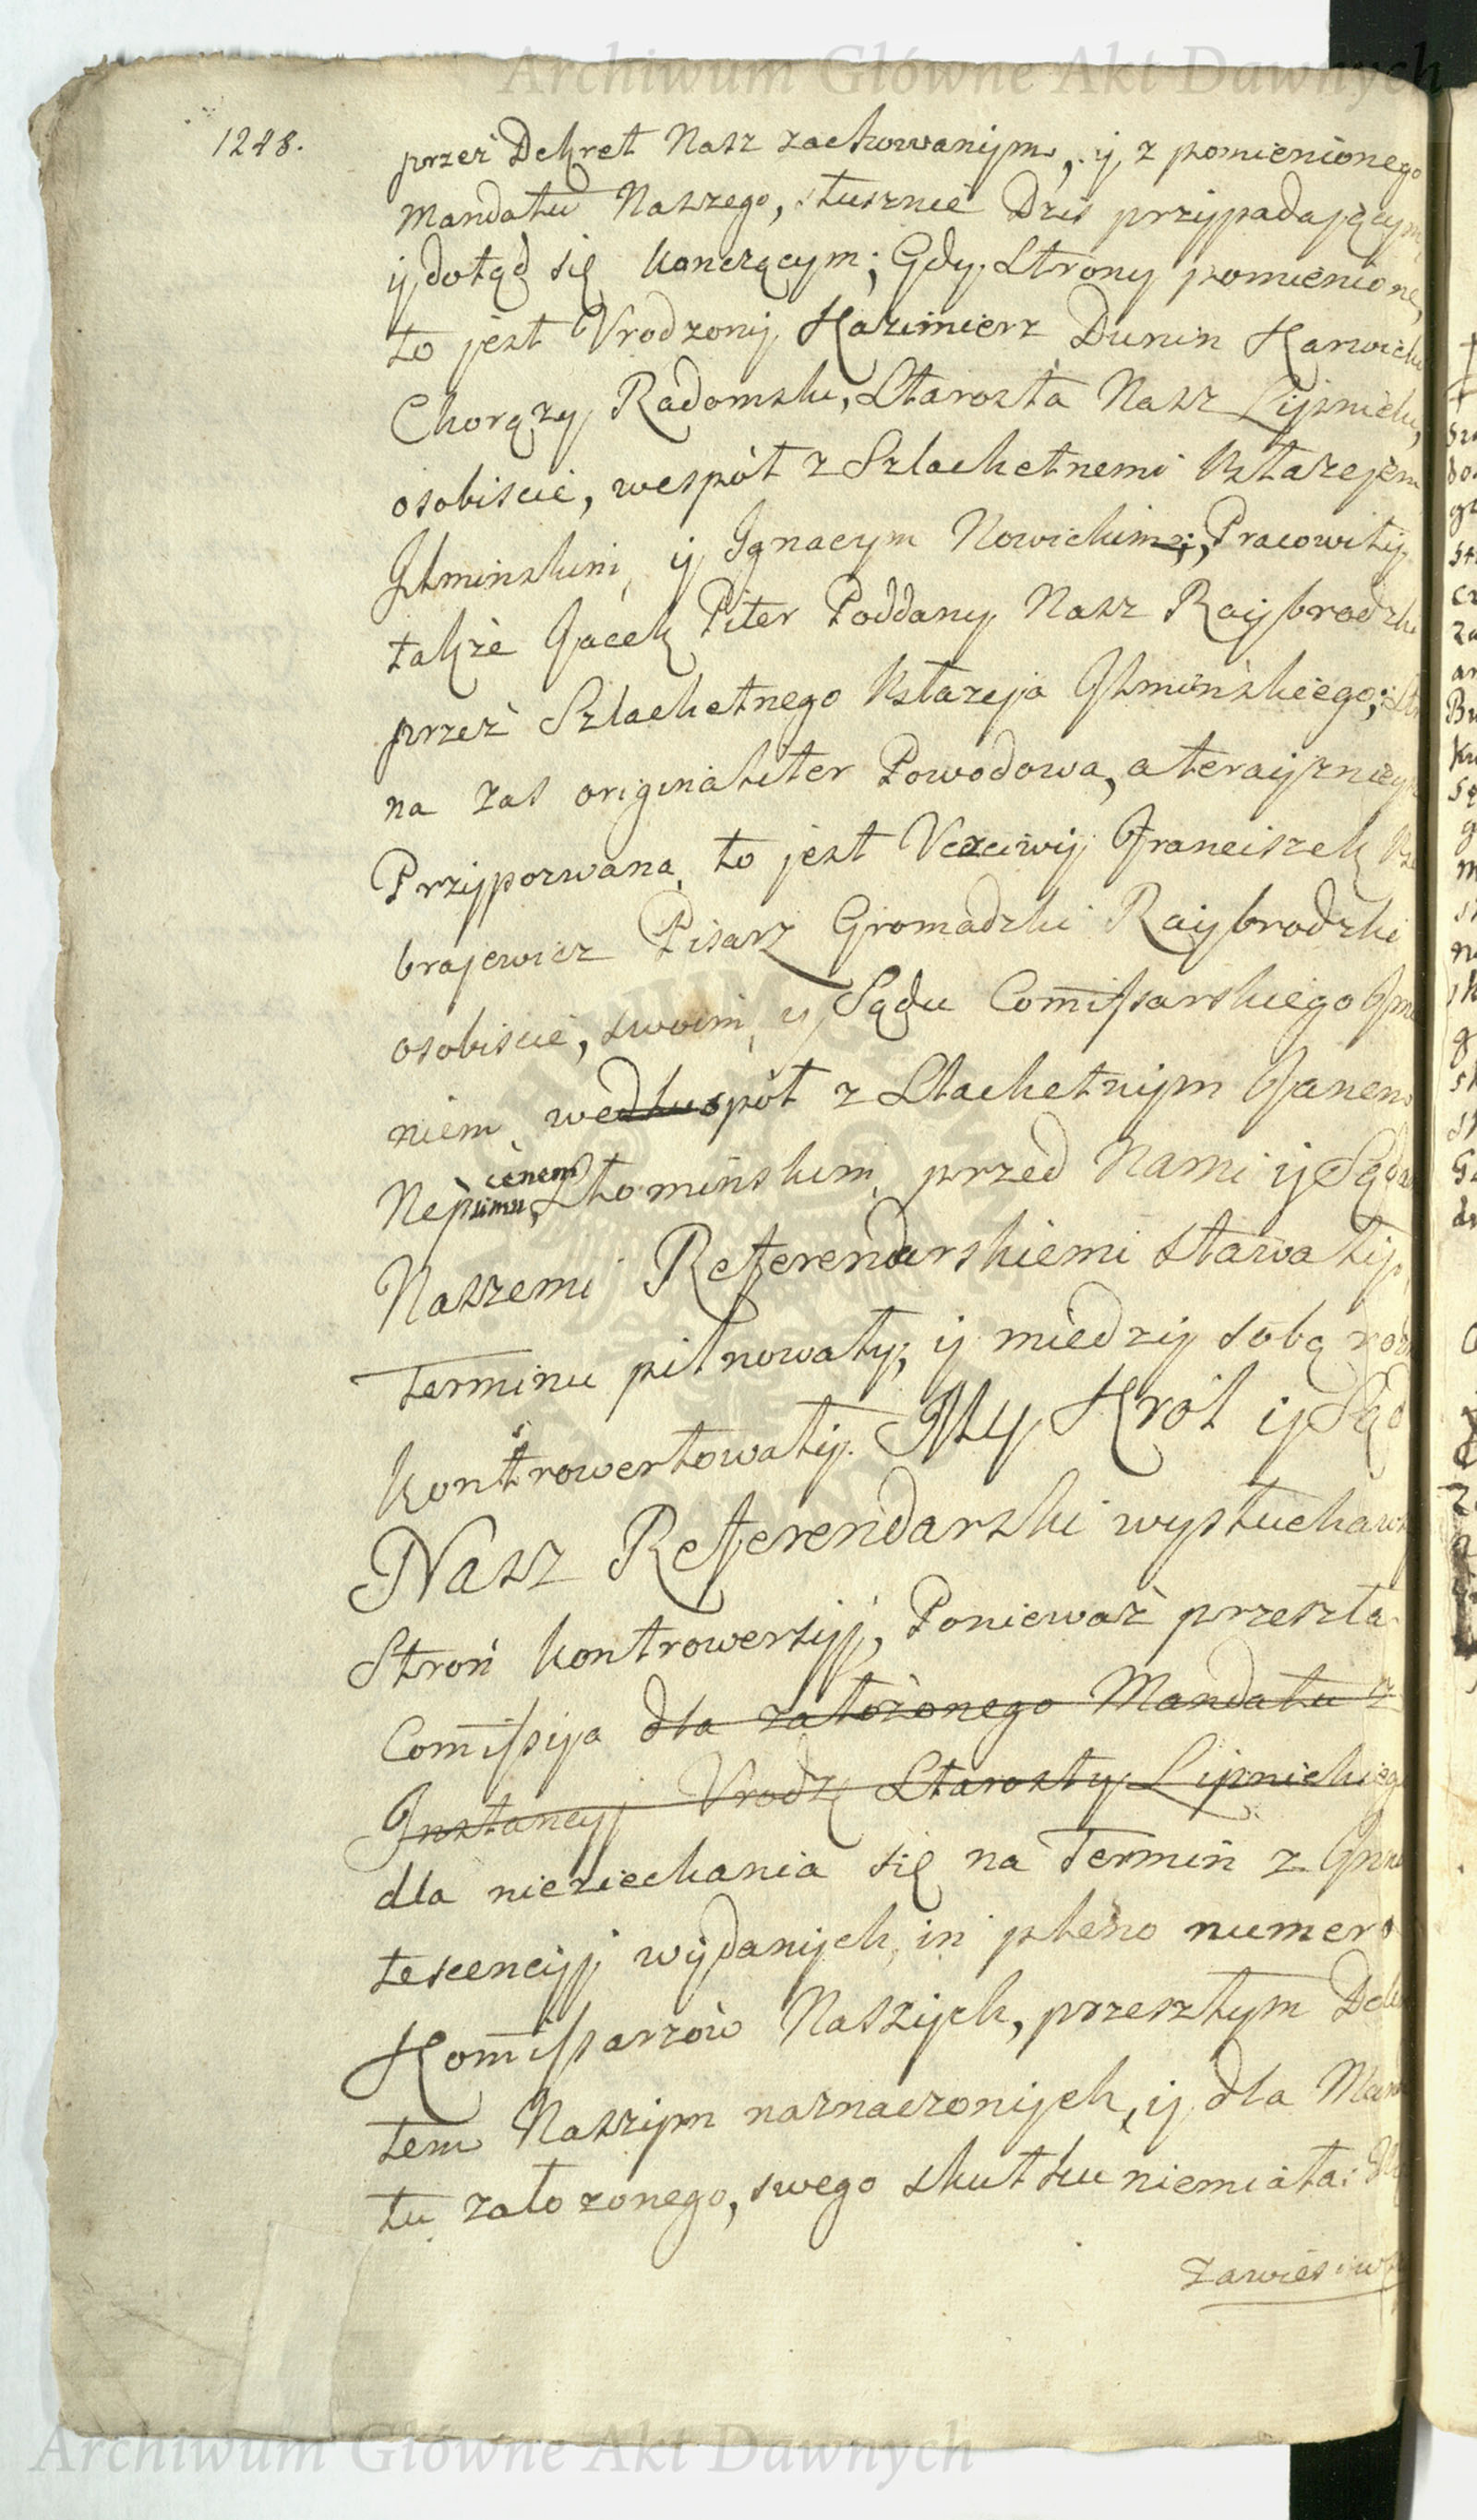 Archiwum Główne Akt Dawnych
1248.
przez Dekret Nasz zachowanym, y z pomienionego
Mandatu Naszego, słusznie Dzis przypadaiącym
y dotąd się konczącym; Gdy Strony pomienione,
to jest Vrodzony Kazimierz Dunin Karwicki
Chorąży Radomski, Starosta Nasz Lipnicki,
osobiscie, wespół z Szlachetnemi
y Ignacym Nowickim, Pracowity
także Jacek Piter Poddany Nasz Raybrodzki
przez Szlachetnego
na zas originaliter Powodowa, a
Przypozwana, to jest Vczciwy Franciszek
brajewicz Pisarz Gromadzki Raybrodzki
osobiscie, swoim, y Sądu Commissarskiego Jmie
niem, wedłuspół z Slachetnym Janem
cenem
Słominskim, przed Nami y Sąda
Naszemi Referendarskiemi stawały,
Terminu pilnowały; y miedzy sobą
kontrowertowały. My Krol y Sąd
Nasz Referendarski wysłuchaw
Stron kontrowersyj, Ponieważ przeszła
Commissyja dla założonego Mandatu z
Instancyj Vrodz Starosty Lipnickiego
dla nieziechania się na Termin z Inno
tescencyj wydanych, in pleno numero
Kommissarzow Naszych, przeszłym Dekre
tem Naszym naznaczonych, y dla Manda
tu założonego, swego skutku niemiała:
zawiesiw
Archiwum Główne Akt Dawnych